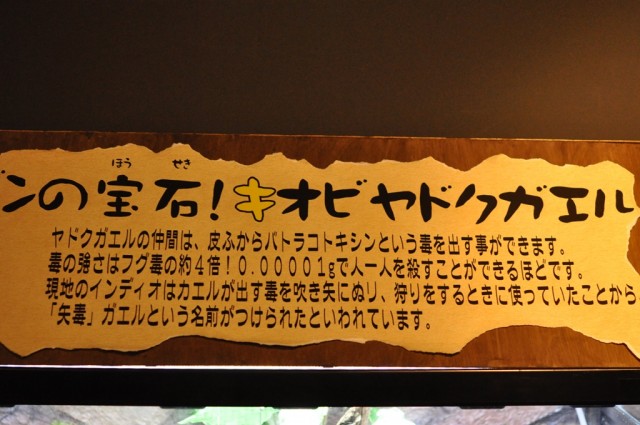 ほう せき
ンの宝石!キオビヤドクガエル
ヤドクガエルの仲間は、皮ふからバトラコトキシンという毒を出す事ができます。
毒の強さはフグ毒の約4倍!0.00001gで人一人を殺すことができるほどです。
現地のインディオはカエルが出す毒を吹き矢にぬり、狩りをするときに使っていたことから
「矢毒」ガエルという名前がつけられたといわれています。